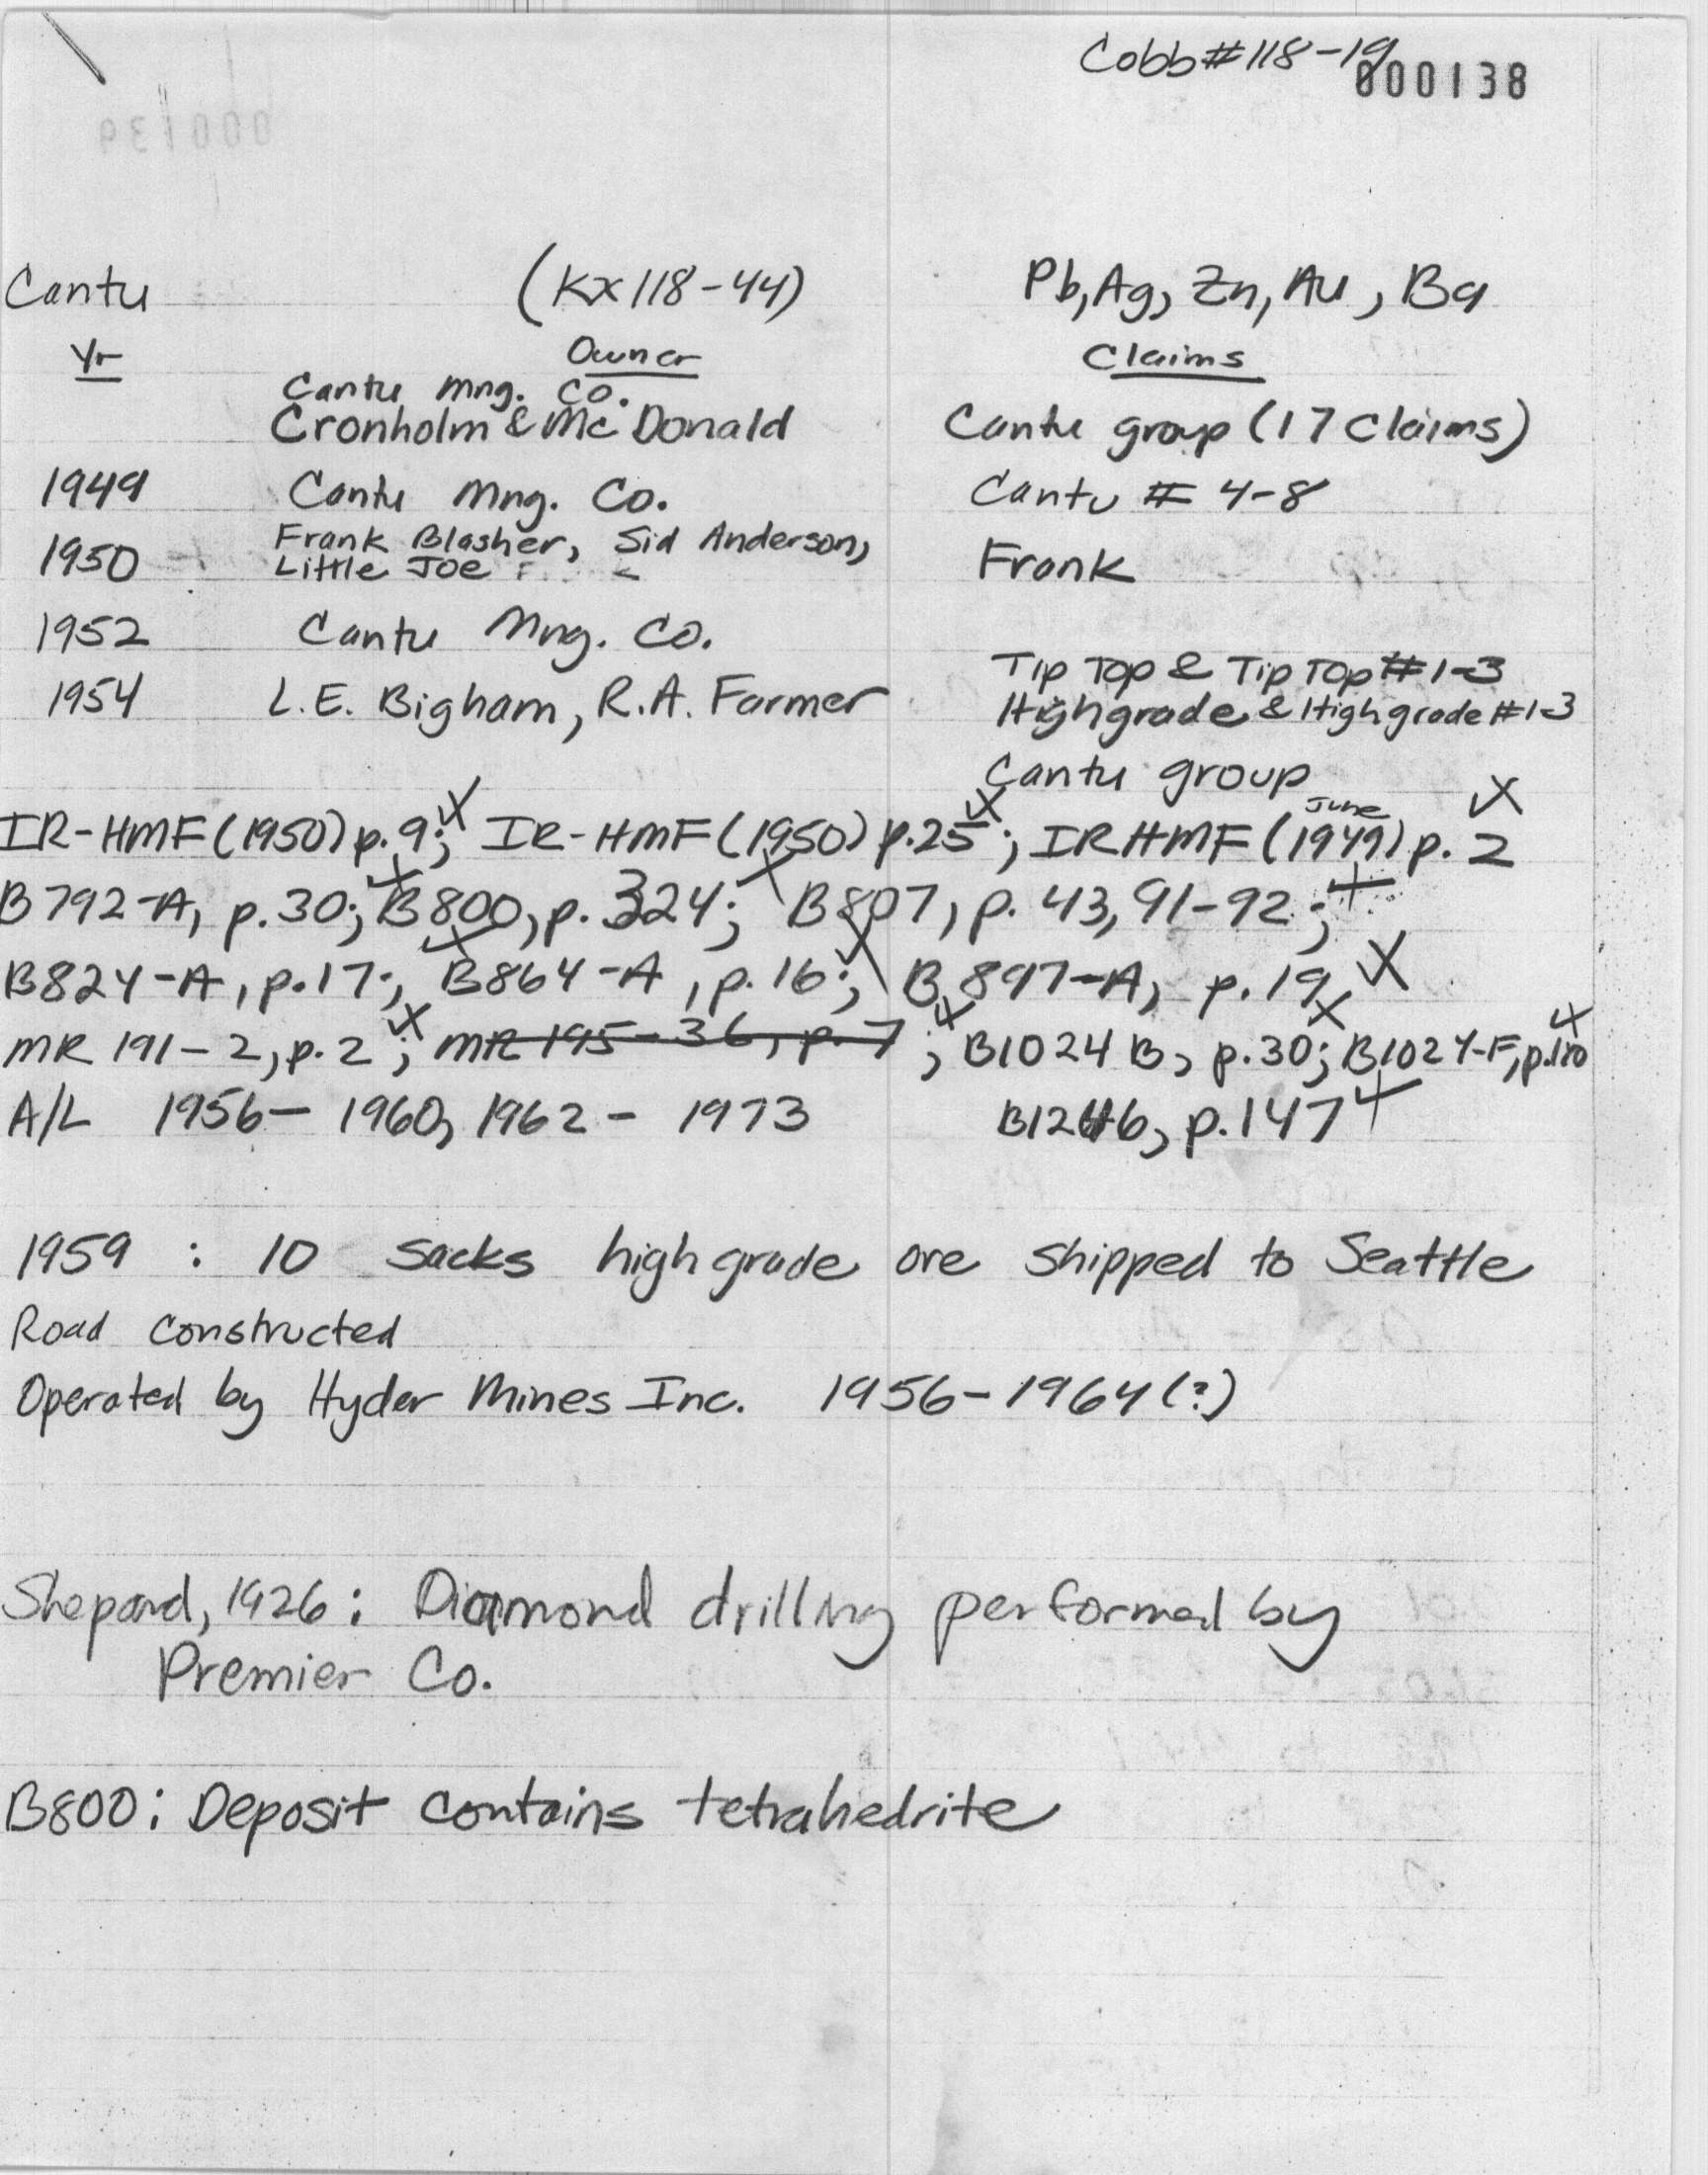 Cobb # 118-19
000138
Cantu (Kx 118-44) Pb, Ag, Zn, Au, Ba
Yr Owner Claims
Cantu Mng. Co.
Cronholm & Mc Donald Cantu group (17 Claims)
1949 Cantu Mng. Co. Cantu # 4-8
1950 Frank Blasher, Sid Anderson, Frank
Little Joe
1952 Cantu Mng. Co.
1954 L.E. Bigham, R.A. Farmer Tip Top & Tip Top # 1-3
Highgrade & Highgrade #1-3
Cantu group
IR-HMF (1950) p. 9; IR-HMF (1950) p. 25; IR HMF (June 1949) p. 2
B792-A, p. 30; B800, p. 324; B807, p. 43, 91-92;
B824-A, p. 17; B864-A, p. 16; B897-A, p. 19
MR 191-2, p. 2; MR 195-36, p. 7; B1024 B, p. 30; B1024-F, p.
A/L 1956-1960, 1962-1973 B1246, p. 147
1959 : 10 sacks high grade ore shipped to Seattle
Road constructed
Operated by Hyder Mines Inc. 1956-1964 (?)
Shepard, 1926 : Diamond drilling performed by
Premier Co.
B800 : Deposit contains tetrahedrite